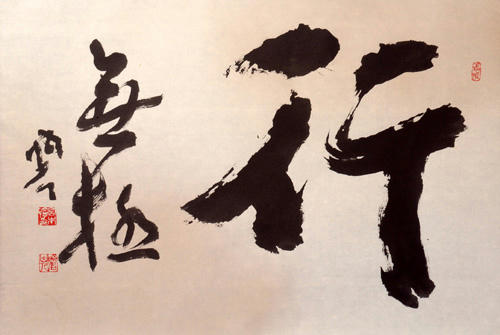 行
無極